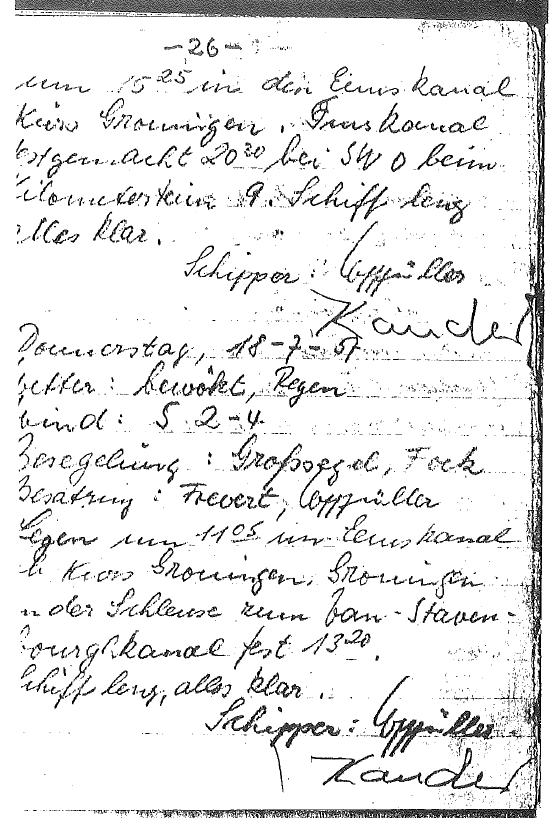 -26-
um 15²⁵ in den Emskanal
Kurs Groningen. Emskanal
estgemacht 20³⁰ bei SW 0 beim
ilometerstein 9. Schiff lenz
alles klar.
Schipper:
Kander
Donnerstag, 18-7-57
etter: bewölkt, Regen
ind: S 2-4
Besegelung: Großsegel, Fock
Besatzung: Frevert,
legen um 11⁰⁵ im Emskanal
Kurs Groningen. Groningen
n der Schleuse zum van-Staven-
kanal fest 13²⁰.
chiff lenz, alles klar.
Schipper:
Kander